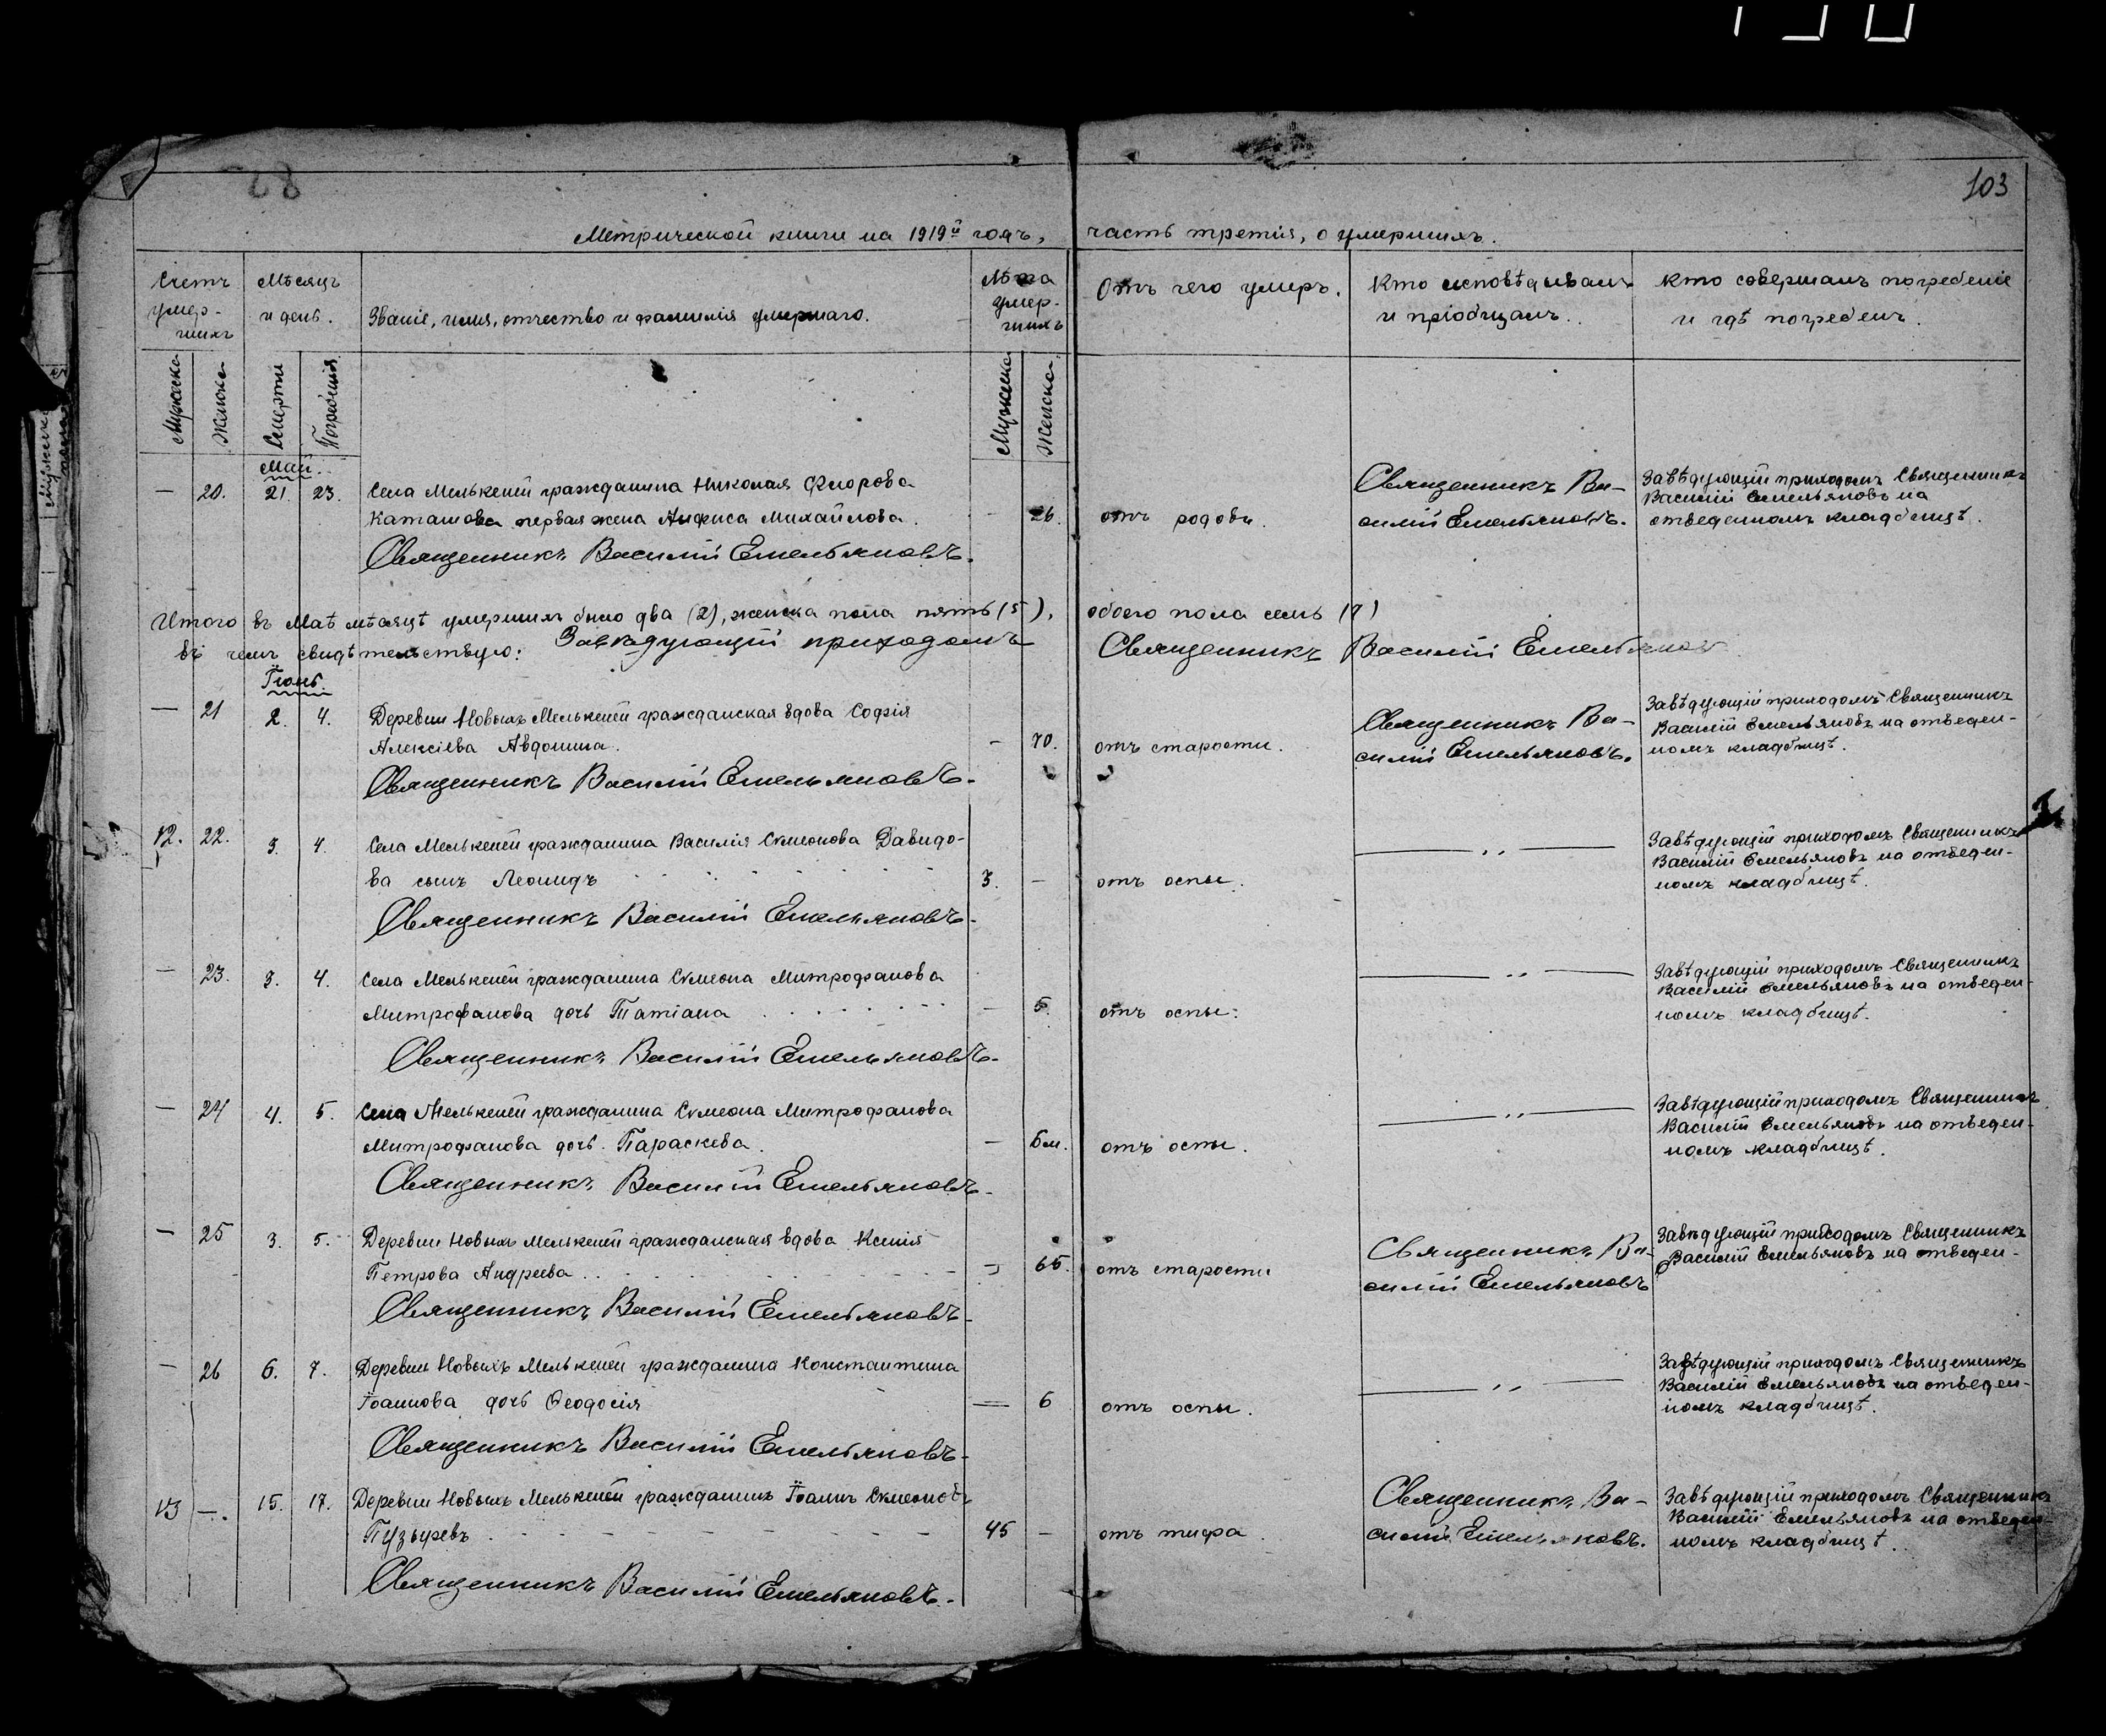 103
Метрической книги на 1919й годъ, часть третія, о умершихъ.
Счетъ умер-шихъ
Мѣсяцъ и день.
Званіе, имя, отчество и фамилія умершаго.
Лѣта умер-шихъ
Отъ чего умеръ.
Кто исповѣдывалъ и пріобщалъ.
Кто совершалъ погребеніе и гдѣ погребенъ.
Мужска
Женска
Смерти
Погребенія
Мужска
Женска
Май.
— 20. 21. 23. Села Мелькеней гражданина Николая Флорова
Каташова первая жена Анфиса Михайлова. — 26. отъ родовъ.
Священникъ Ва-
силій Емельяновъ.
Завѣдующій приходомъ Священникъ
Василій Емельяновъ на
отведенномъ кладбищѣ.
Священникъ Василій Емельяновъ.
Итого въ Маѣ мѣсяцѣ умершихъ было два (2), женска пола пять (5), обоего пола семь (7)
въ чемъ свидѣтельствую: Завѣдующій приходомъ Священникъ Василій Емельянов
Іюнь.
— 21 2. 4. Деревни Новыхъ Мелькеней гражданская вдова Софія
Алексіева Авдонина. — 70. отъ старости.
Священникъ Ва-
силій Емельяновъ.
Завѣдующій приходомъ Священникъ
Василій Емельяновъ на отведен-
номъ кладбищѣ.
Священникъ Василій Емельяновъ.
12. 22. 3. 4. Села Мелькеней гражданина Василія Симеонова Давидо-
ва сынъ Леонидъ 3. — отъ оспы.
— „ —
Завѣдующій приходомъ Священникъ
Василій Емельяновъ на отведен-
номъ кладбищѣ.
Священникъ Василій Емельяновъ.
— 23. 3. 4. Села Мелькеней гражданина Симеона Митрофанова
Митрофанова дочь Татіана — 5. отъ оспы.
— „ —
Завѣдующій приходомъ Священникъ
Василій Емельяновъ на отведен-
номъ кладбищѣ.
Священникъ Василій Емельяновъ.
— 24 4. 5. Села Мелькеней гражданина Симеона Митрофанова
Митрофанова дочь Параскева. — 6м. отъ оспы.
— „ —
Завѣдующій приходомъ Священникъ
Василій Емельяновъ на отведен-
номъ кладбищѣ.
Священникъ Василій Емельяновъ.
— 25 3. 5. Деревни Новыхъ Мелькеней гражданская вдова Ксенія
Петрова Андреева — 65. отъ старости
Священникъ Ва-
силій Емельяновъ
Завѣдующій приходомъ Священникъ
Василій Емельяновъ на отведен-
Священникъ Василій Емельяновъ.
— 26 6. 7. Деревни Новыхъ Мелькеней гражданина Константина
Іоаннова дочь Ѳеодосія — 6 отъ оспы.
— „ —
Завѣдующій приходомъ Священникъ
Василій Емельяновъ на отведен-
номъ кладбищѣ.
Священникъ Василій Емельяновъ.
13 —. 15. 17. Деревни Новыхъ Мелькеней гражданинъ Іоаннъ Симеоновъ
Пузыревъ 45 — отъ тифа.
Священникъ Ва-
силій Емельяновъ.
Завѣдующій приходомъ Священникъ
Василій Емельяновъ на отведен-
номъ кладбищѣ.
Священникъ Василій Емельяновъ.